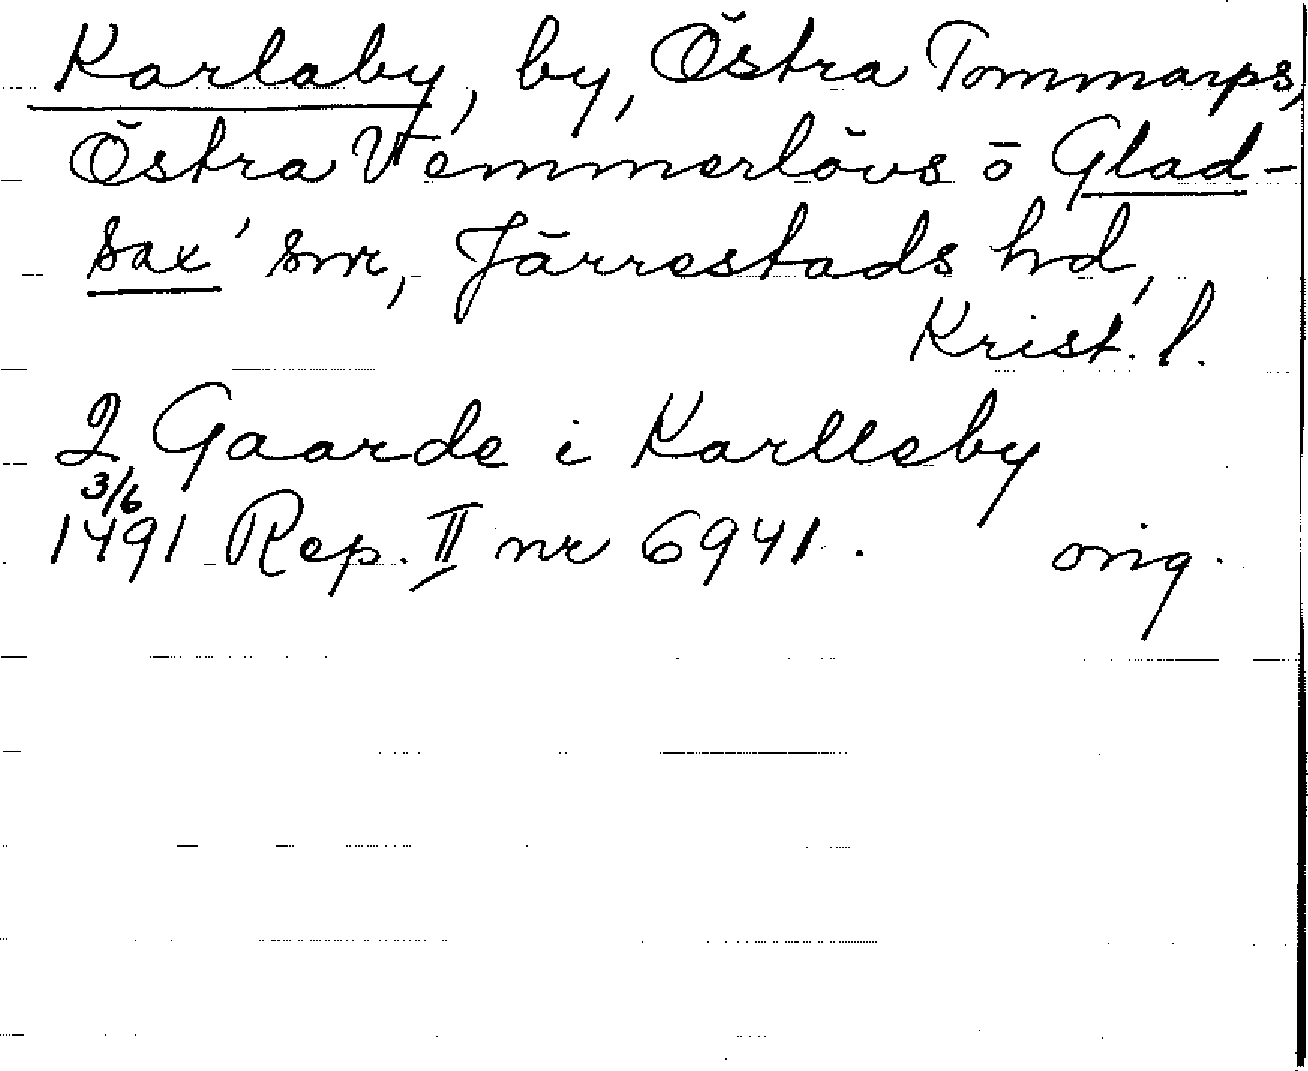 Karlaby, by, Östra Tommarps,
Östra Vemmerlövs o Glad-
sax' snr, Järrestads hd,
Krist. l.
2 Gaarde i Karlleby
3/6
1491 Rep. II nr 6941. orig.